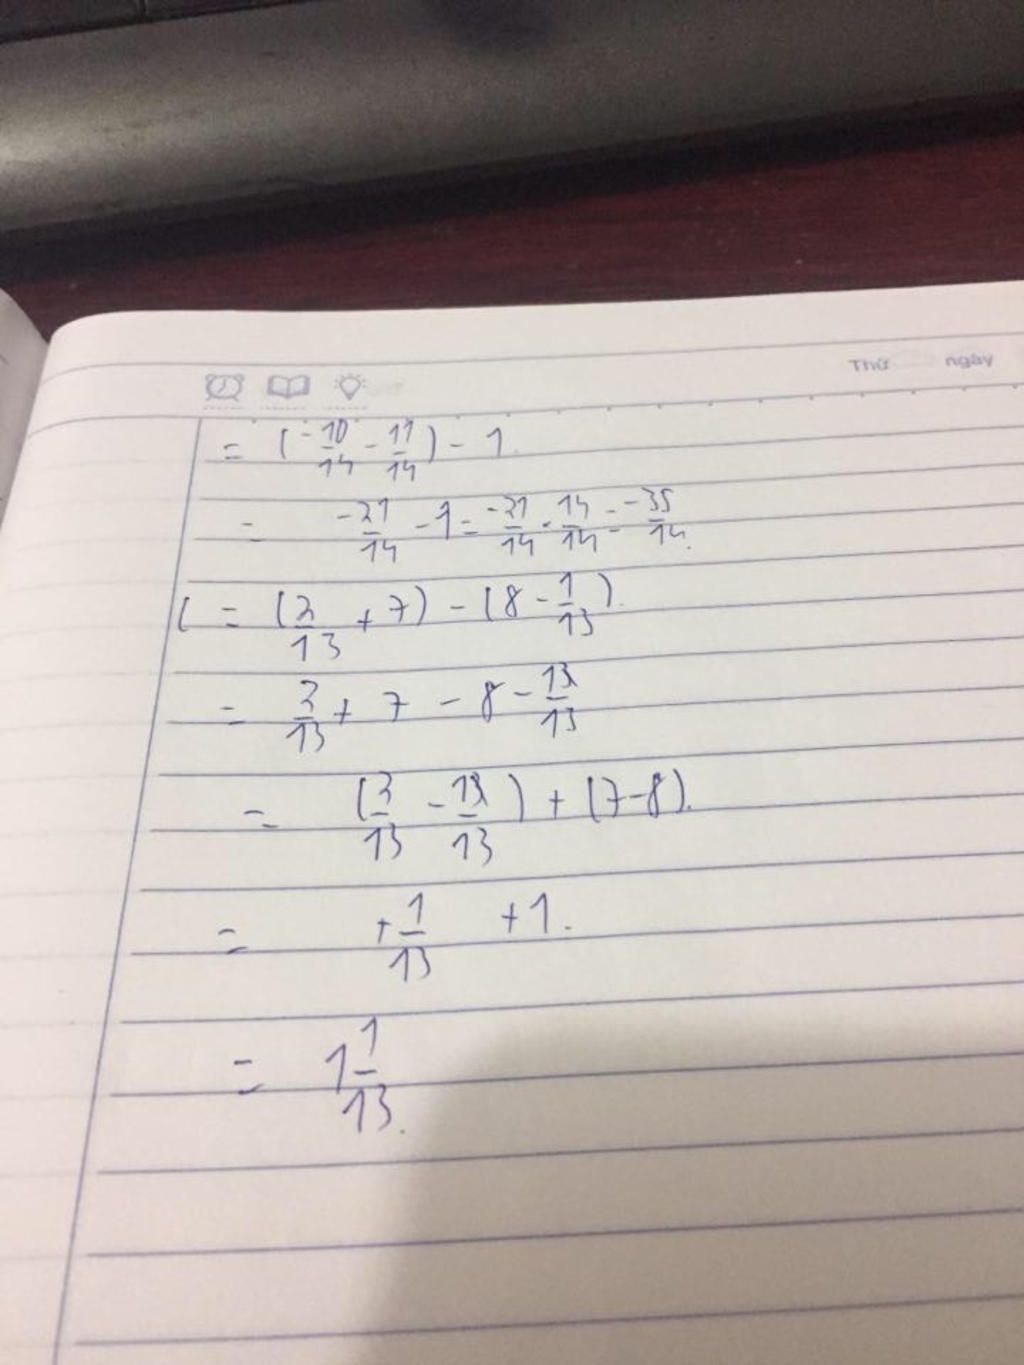 Thứ ngày
= (-10/14 - 11/14) - 1.
= -21/14 - 1 = -21/14 - 14/14 = -35/14.
C = (2/13 + 7) - (8 - 1/13).
= 2/13 + 7 - 8 -
= + (7-8).
= +1/13 +1.
= 1 1/13.